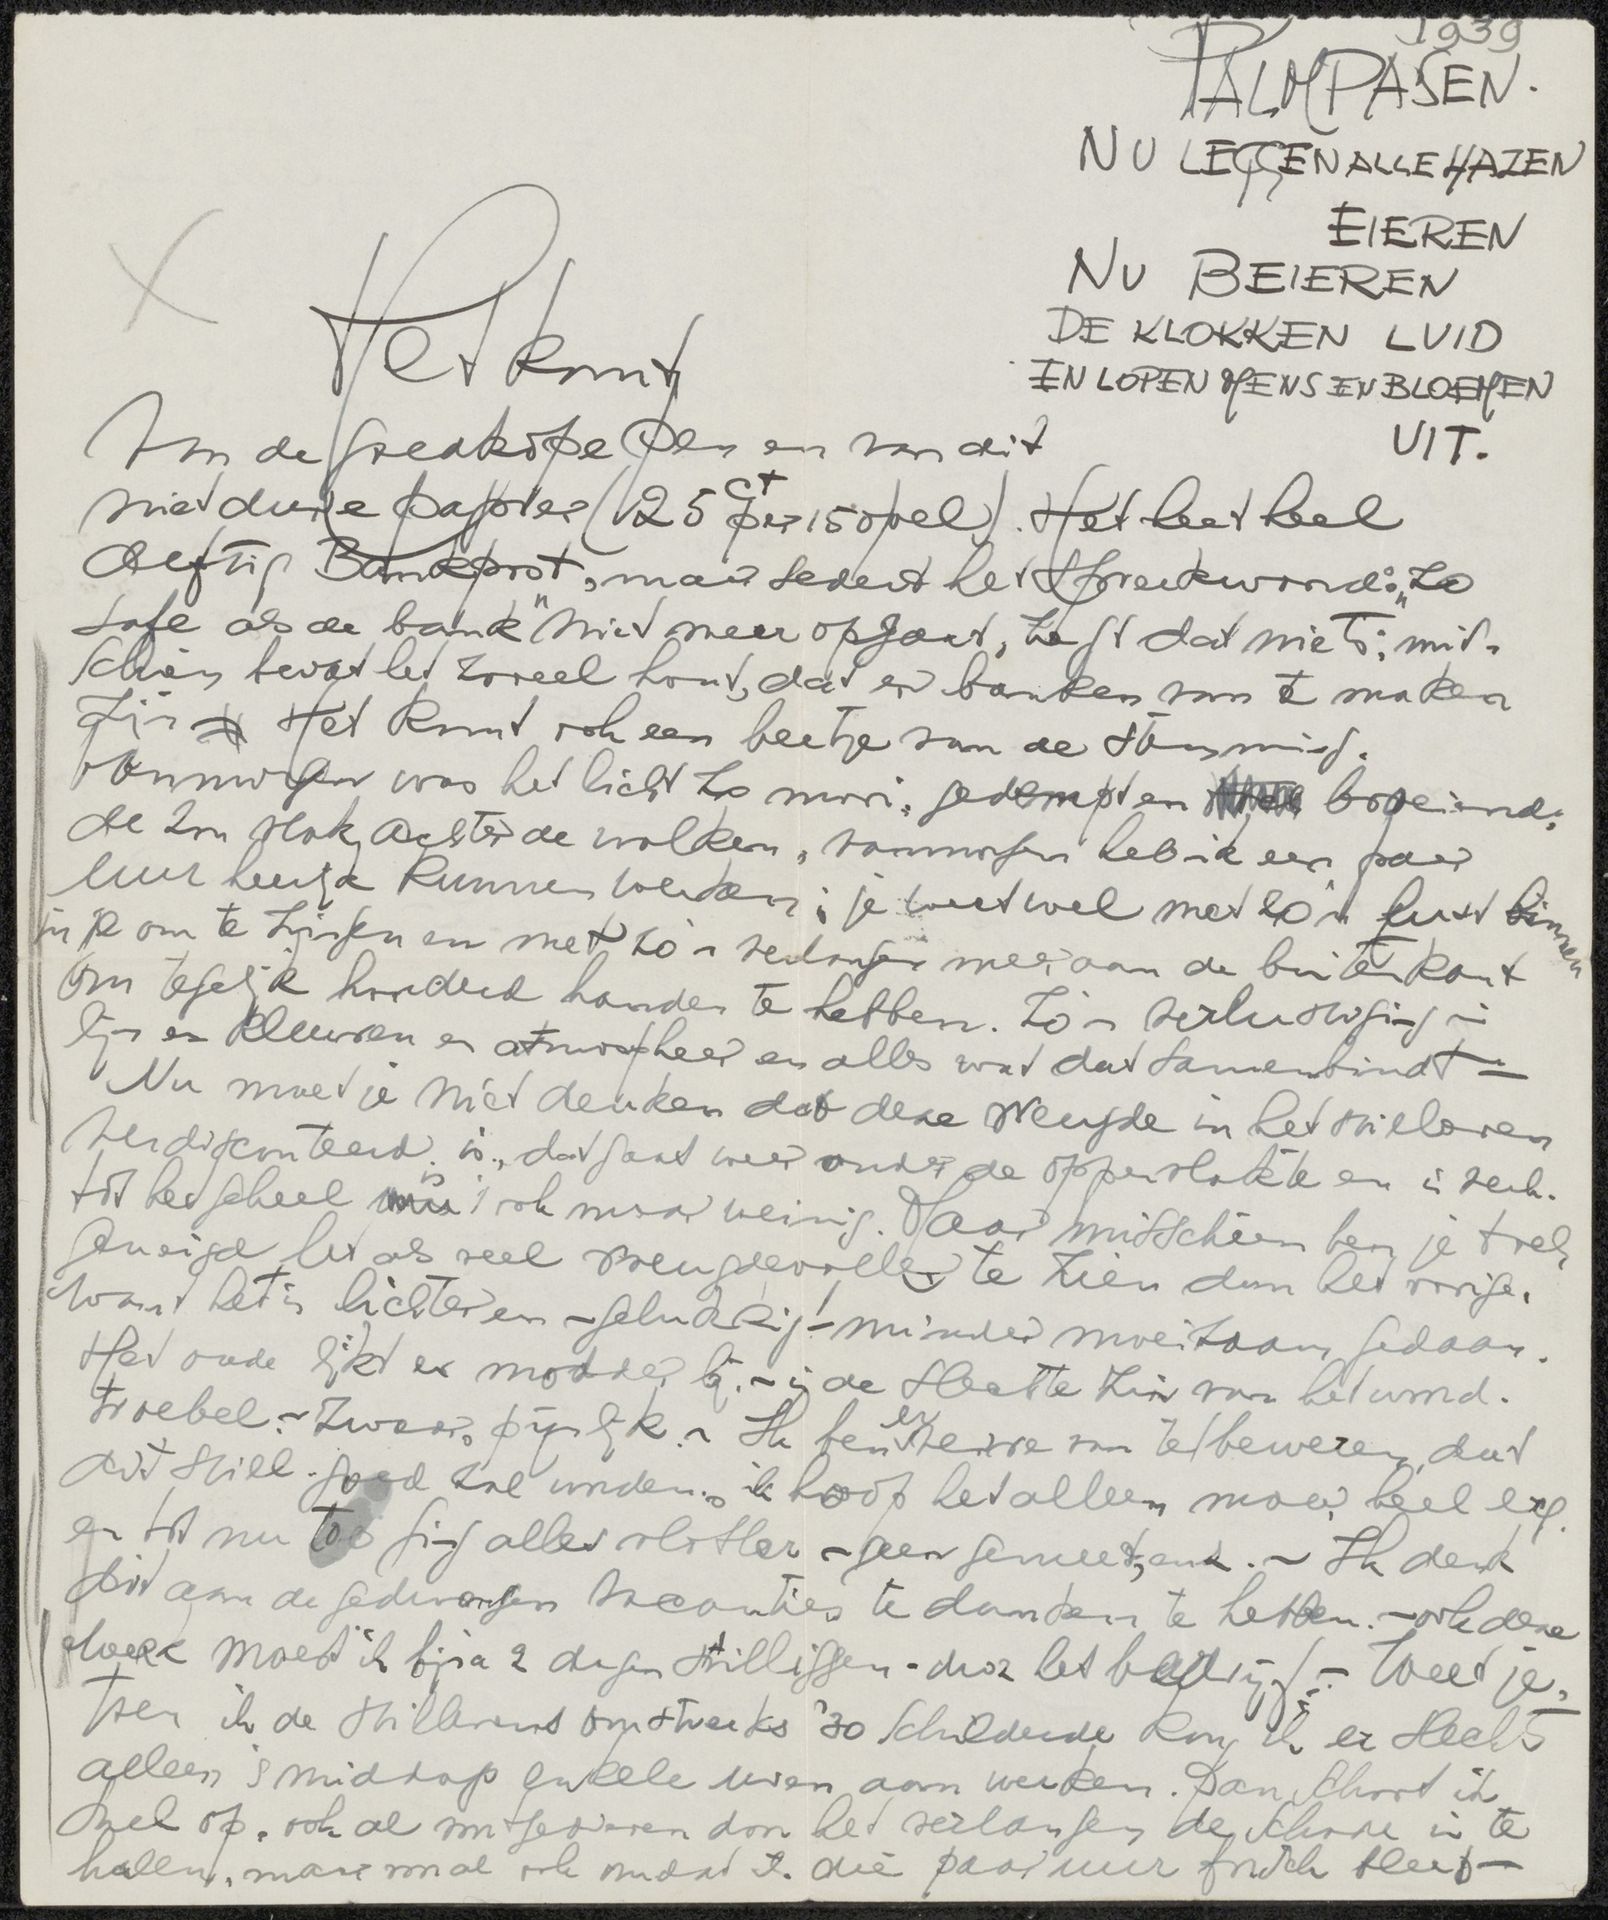 1939
PALMPASEN.
NU LEGGEN ALLE HAZEN
EIEREN
NU BEIEREN
DE KLOKKEN LUID
EN LOPEN MENS EN BLOEMEN
UIT.
Het komt
van de goedkope pen en van dit
niet dure papier (25 ct per 15 vel). Het heet heel
deftig Bankpost, maar sedert het spreekwoord: „zo
safe als de bank" niet meer opgaat, zegt dat niets; mis-
schien bevat het zoveel hout, dat er banken van te maken
zijn Het komt ook een beetje van de stemming.
vanmorgen was het licht zo mooi, gedempt en boeiend;
de zon vlak achter de wolken, vanmorgen heb ik een paar
uur heerlijk kunnen werken; je weet wel met zo'n lust binnen
in je om te zingen en met zo'n verlangen meer aan de buitenkant
om tegelijk honderd handen te hebben. Zo'n verlustiging in
lijn en kleuren en atmospheer en alles wat dat samenbindt —
Nu moet je niet denken dat deze vreugde in het stilleven
verdisconteerd is, dat gaat weer onder de oppervlakte en is verh.
tot het geheel is ook maar weinig. Maar misschien ben je toch
geneigd het als veel vreugdevoller te zien dan het vorige,
want het is lichter en – gelukkig! – minder moeizaam gedaan.
Het oude lijkt er modder bij – in de slechtste zin van het woord.
troebel – zwaar, pijnlijk – Ik ben er verre van te beweren, dat
dit stilleven goed zal worden, ik hoop het alleen maar heel erg.
en tot nu toe ging alles vlotter – geen gemier, enz. – Ik denk
dit aan de gedwongen vacanties te danken te hebben. – ook deze
week moest ik bijna 2 dagen stilliggen – door het bedrijf – Weet je,
toen ik de stillevens omstreeks '30 schilderde kon ik er slechts
alleen 's middags enkele uren aan werken. Dan schoot ik
snel op, ook al aangedreven door het verlangen de schade in te
halen, maar vooral ook omdat ik die paar uur frisch bleef —